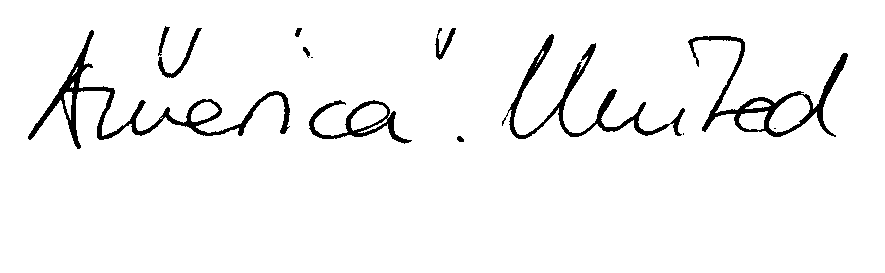 America". United